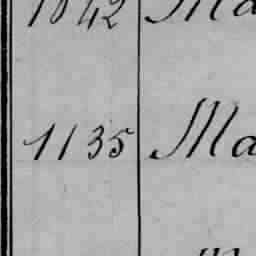 1842 Ma
1135 Ma